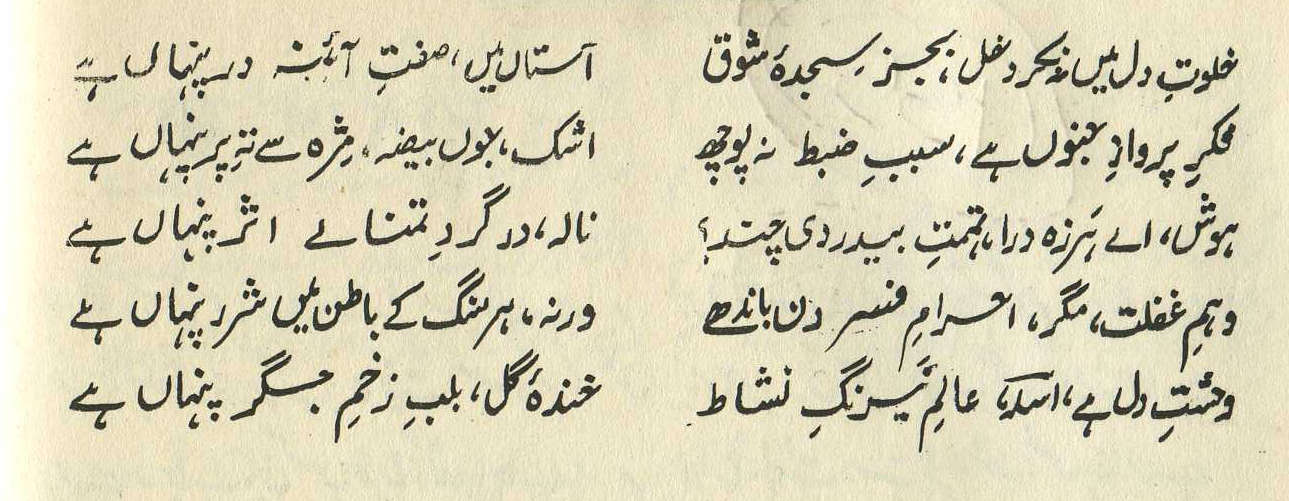 خلوتِ دل میں نہ کر دخل، بجز سجدۂ شوق آستاں میں، صفتِ آئنہ در پنہاں ہے
فکرِ پروازِ جنوں ہے، سببِ ضبط نہ پوچھ اشک، جوں بیضہ، مژہ سے تہِ پر پنہاں ہے
ہوش، اے ہَرزہ درا، تہمتِ بیدردی چند؟ نالہ، در گردِ تمنائے اثر پنہاں ہے
وہمِ غفلت، مگر، احرامِ فسردن باندھے ورنہ، ہر سنگ کے باطن میں شرر پنہاں ہے
وحشتِ دل ہے، اسدؔ، عالمِ نَیرنگِ نشاط خندۂ گل، بلبِ زخمِ جگر پنہاں ہے